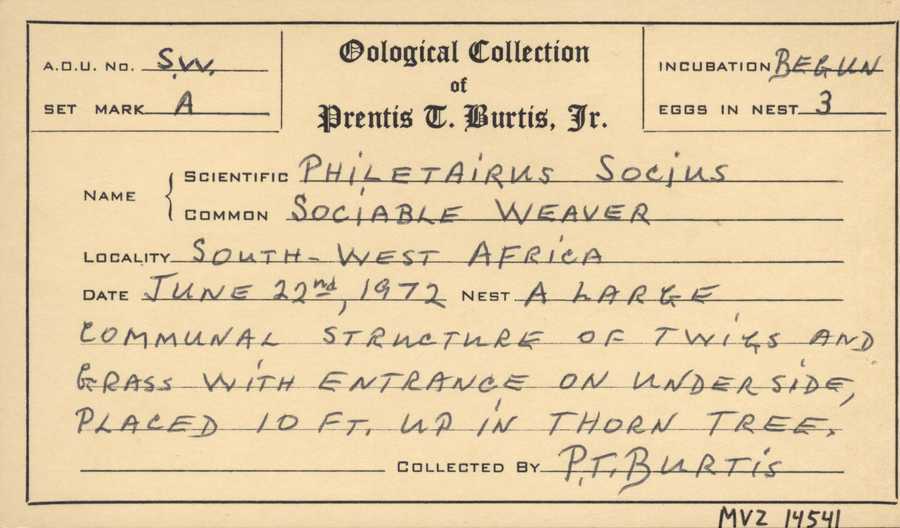 A.O.U. No. S.W.
SET MARK A
Oological Collection
of
Prentis T. Burtis, Jr.
INCUBATION BEGUN
EGGS IN NEST 3
NAME
SCIENTIFIC PHILETAIRUS SOCIUS
COMMON SOCIABLE WEAVER
LOCALITY SOUTH-WEST AFRICA
DATE JUNE 22nd, 1972 NEST A LARGE
COMMUNAL STRUCTURE OF TWIGS AND
GRASS WITH ENTRANCE ON UNDERSIDE,
PLACED 10 FT. UP IN THORN TREE.
COLLECTED BY P.T. BURTIS
MVZ 14541